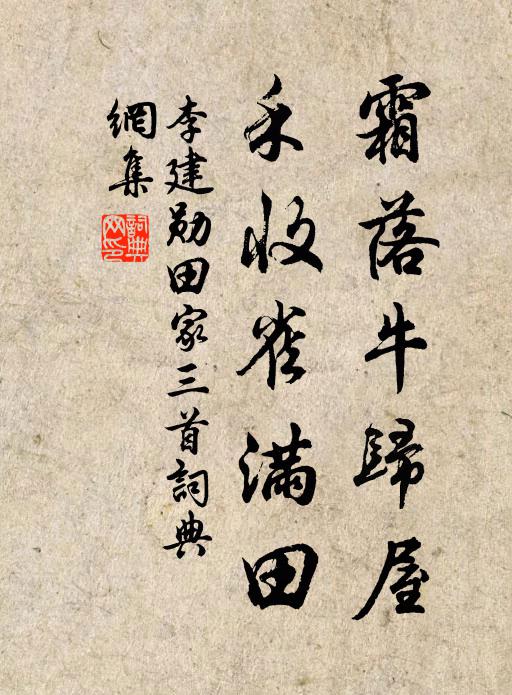 霜落牛歸屋
禾收雀滿田
李建勛田家三首詞典
網集
詞典
网印